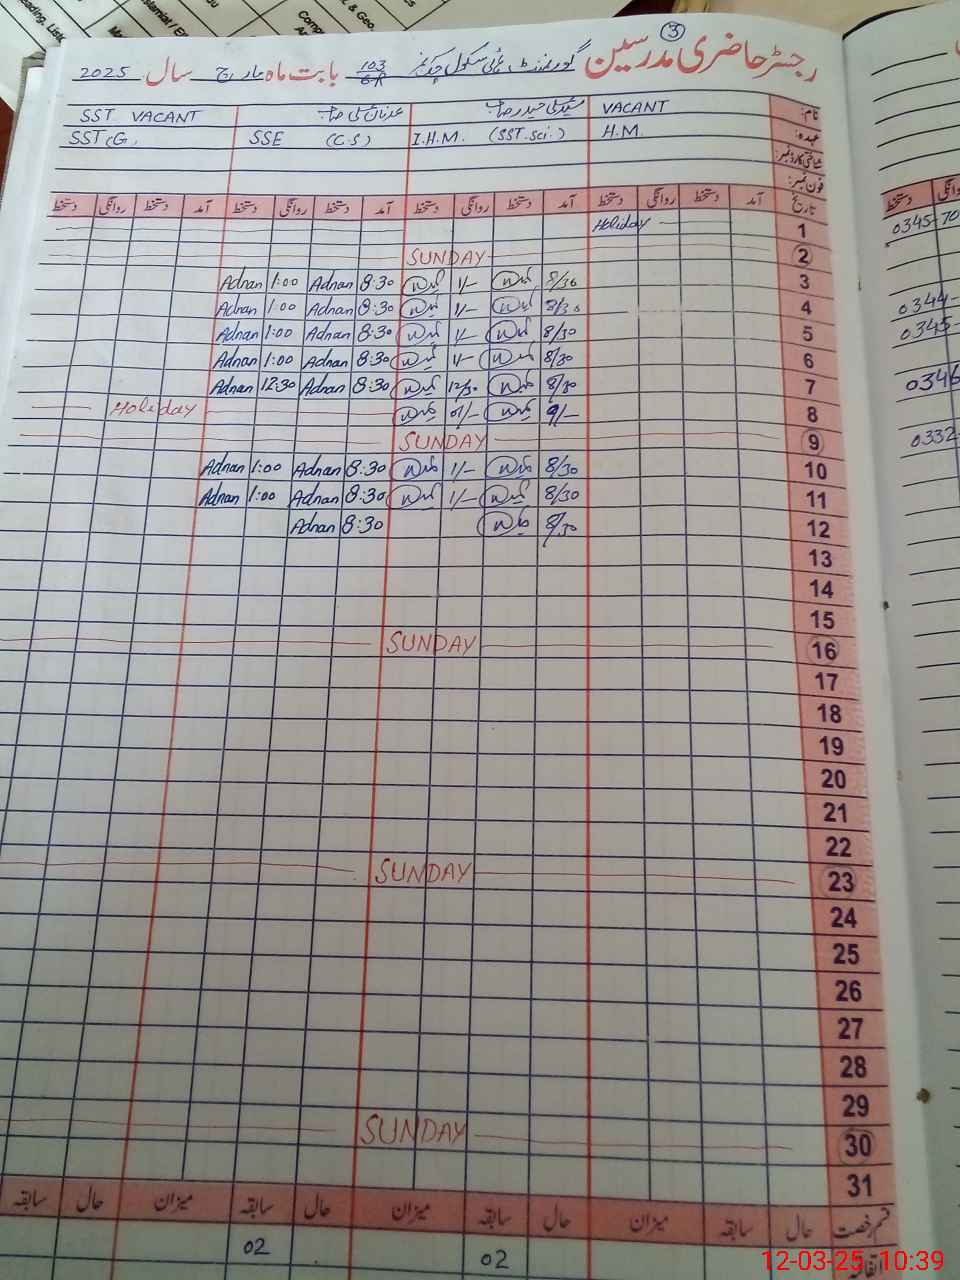 eading, List
Islamiat / Et
Comp
& Geo.
③
رجسٹر حاضری مدرسین گورنمنٹ ہائی سکول چک نمبر 103/6-R بابت ماہ مارچ سال 2025
نام: VACANT سید علی حیدر صاحب عدنان علی صاحب SST VACANT
عہدہ: H.M. I.H.M. (SST.Sci.) SSE (C.S) SST(G)
شناختی کارڈ نمبر:
فون نمبر:
تاریخ آمد دستخط روانگی دستخط آمد دستخط روانگی دستخط آمد دستخط روانگی دستخط آمد دستخط روانگی دستخط
1 Holiday
2 SUNDAY
3 8/30 1/- 8:30 Adnan 1:00 Adnan
4 8/30 1/- 8:30 Adnan 1:00 Adnan
5 8/30 1/- 8:30 Adnan 1:00 Adnan
6 8/30 1/- 8:30 Adnan 1:00 Adnan
7 8/30 12/30 8:30 Adnan 12:30 Adnan
8 9/- 01/- Holiday
9 SUNDAY
10 8/30 1/- 8:30 Adnan 1:00 Adnan
11 8/30 1/- 8:30 Adnan 1:00 Adnan
12 8/30 8:30 Adnan
13
14
15
16 SUNDAY
17
18
19
20
21
22
23 SUNDAY
24
25
26
27
28
29
30 SUNDAY
31
قسم رخصت حال سابقہ میزان حال سابقہ میزان حال سابقہ میزان حال سابقہ
اتفاقیہ 02 02
دستخط
0345-70
0344-
0345-
0346
0332-
12-03-25 10:39